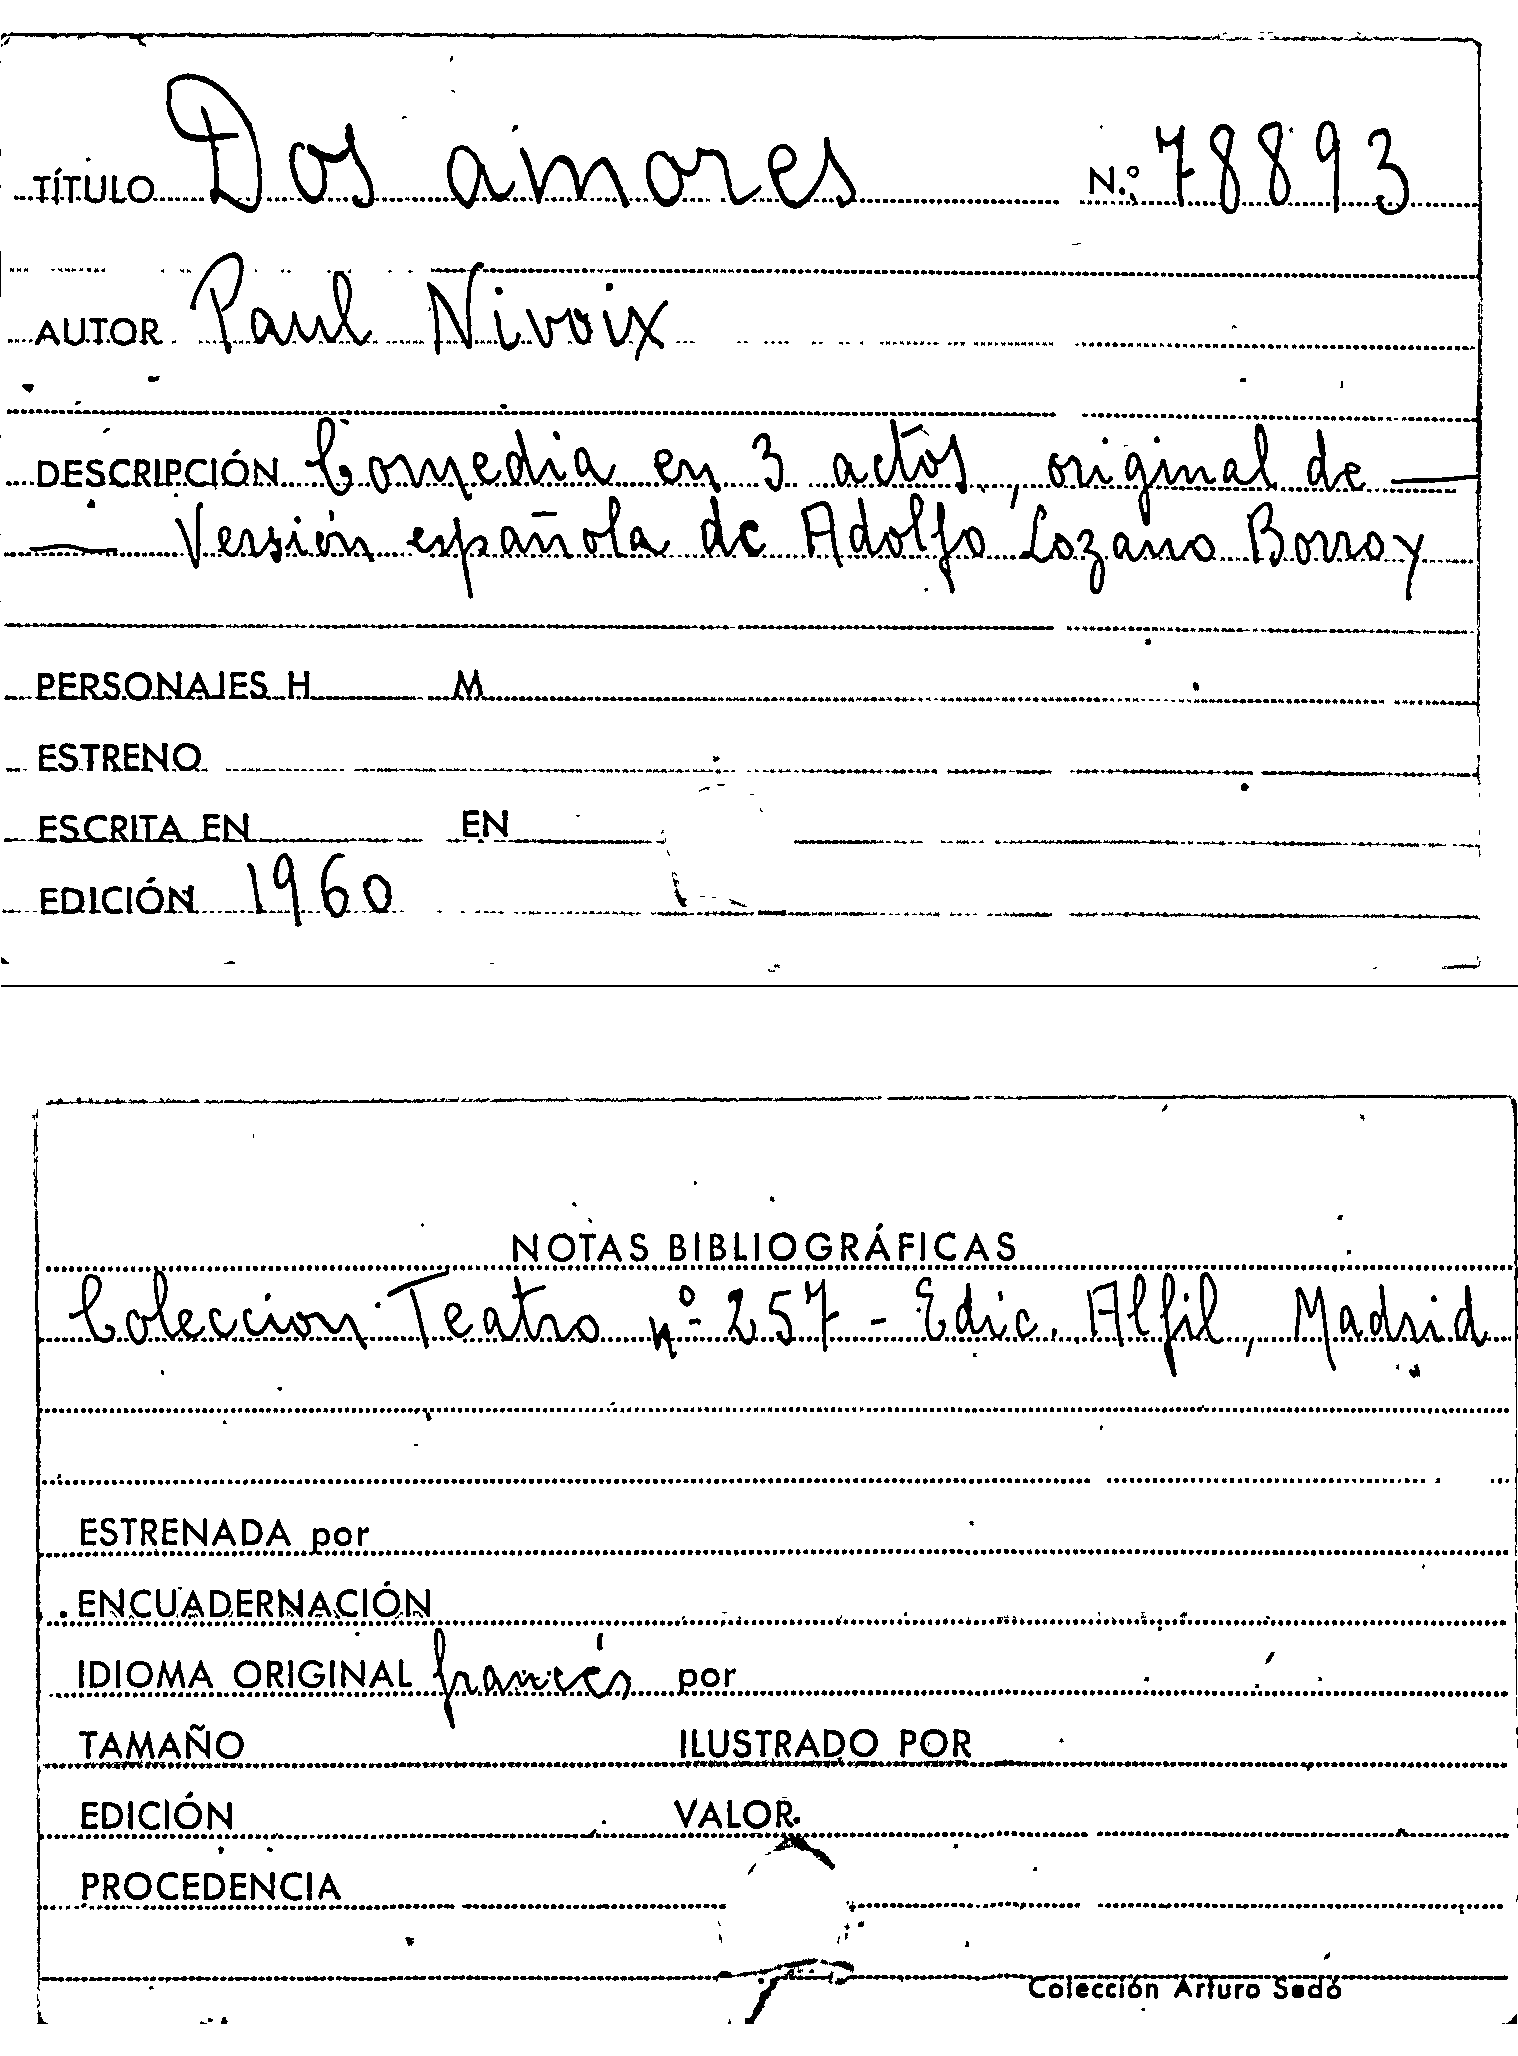 TÍTULO Dos amores N.º 78893
AUTOR Paul Nivoix
DESCRIPCIÓN Comedia en 3 actos, original de —
— Versión española de Adolfo Lozano Borroy
PERSONAJES H M
ESTRENO
ESCRITA EN EN
EDICIÓN 1960
NOTAS BIBLIOGRÁFICAS
Coleccion Teatro nº 257 - Edic. Alfil, Madrid
ESTRENADA por
ENCUADERNACIÓN
IDIOMA ORIGINAL francés por
TAMAÑO ILUSTRADO POR
EDICIÓN VALOR
PROCEDENCIA
Colección Arturo Sedó